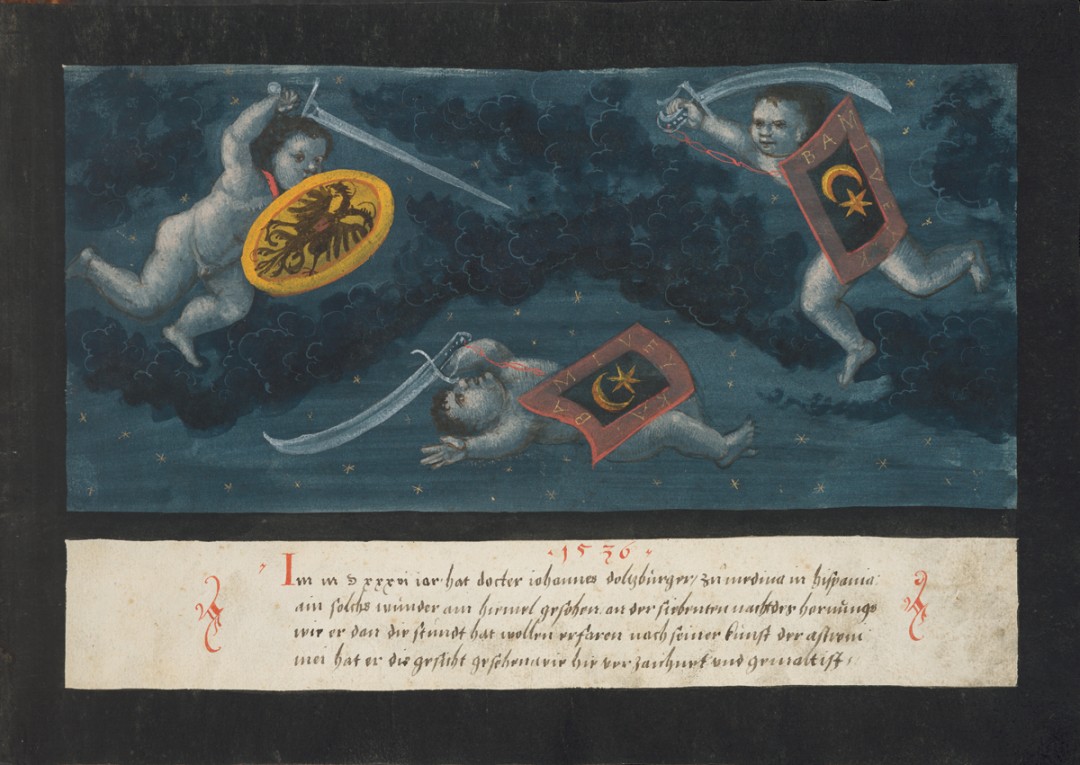 BAMIVEYK
BAMIVEYKA
·1536·
Im m d xxxvi iar hat docter iohannes doltzbürger zu medina in hispania
ain solchs wunder am hiemel gesehen an der siebenten nacht des hornungs
wie er dan die stundt hat wollen erfaren nach seiner kunst der astrem
mei hat er die gesicht gesehen wie hie verzaichnet und gemalt ist